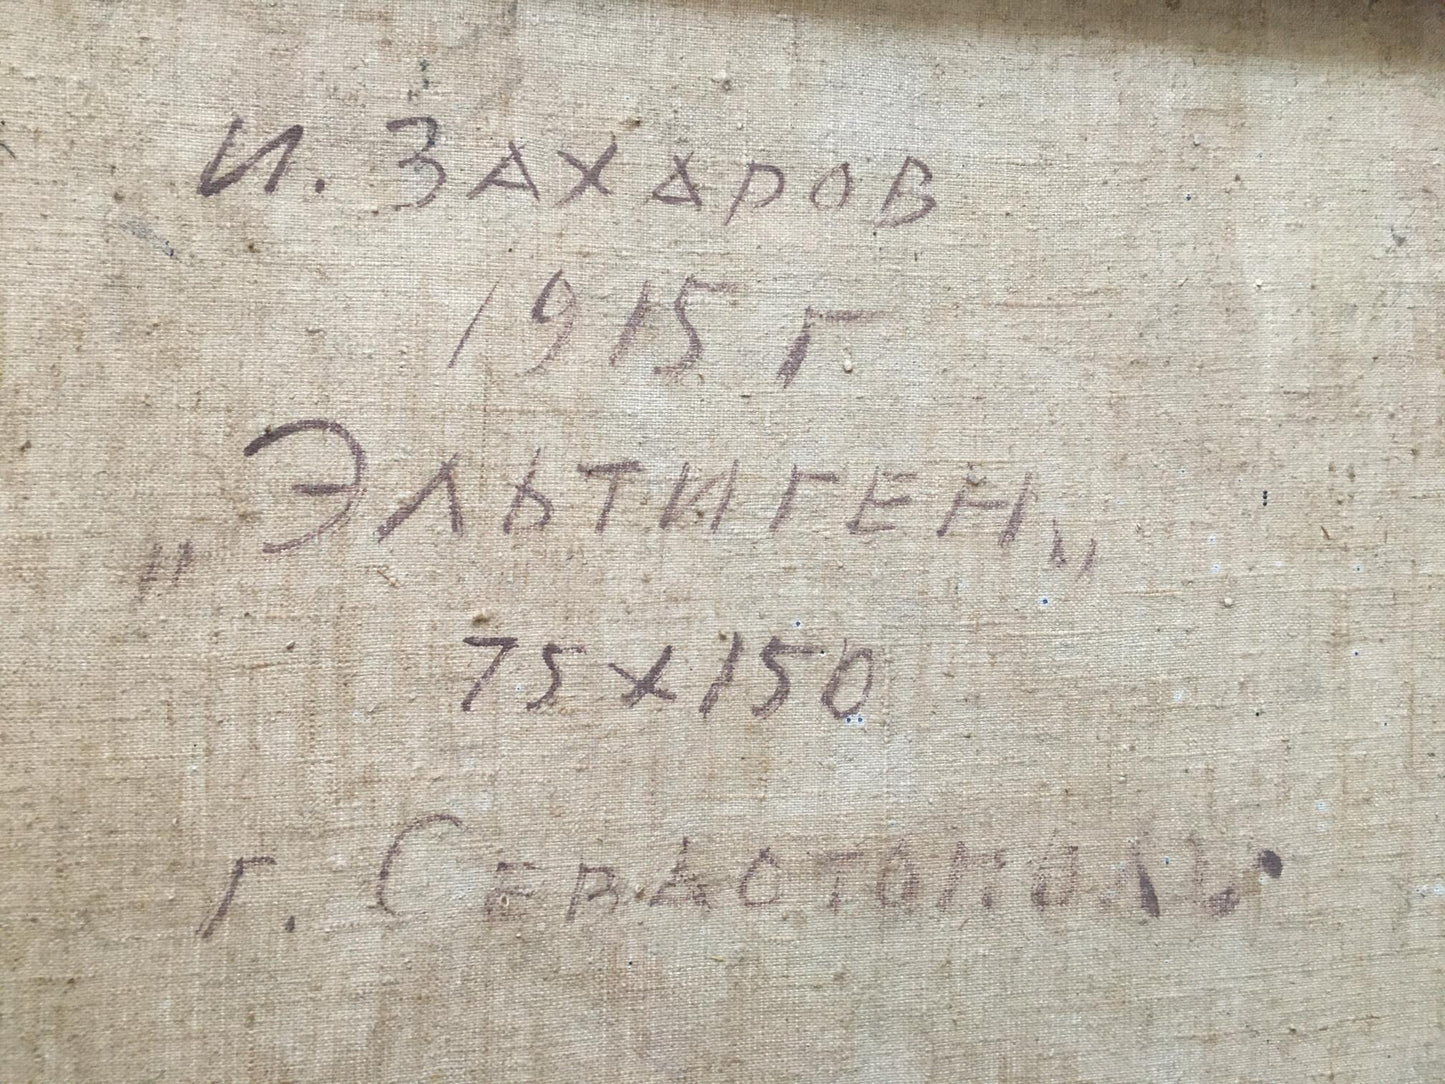 И. ЗАХАРОВ
1915 г.
„ЭЛЬТИГЕН„
75х150
г. СЕВАСТОПОЛЬ